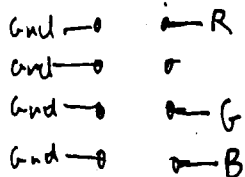 Gnd R
Gnd
Gnd G
Gnd B